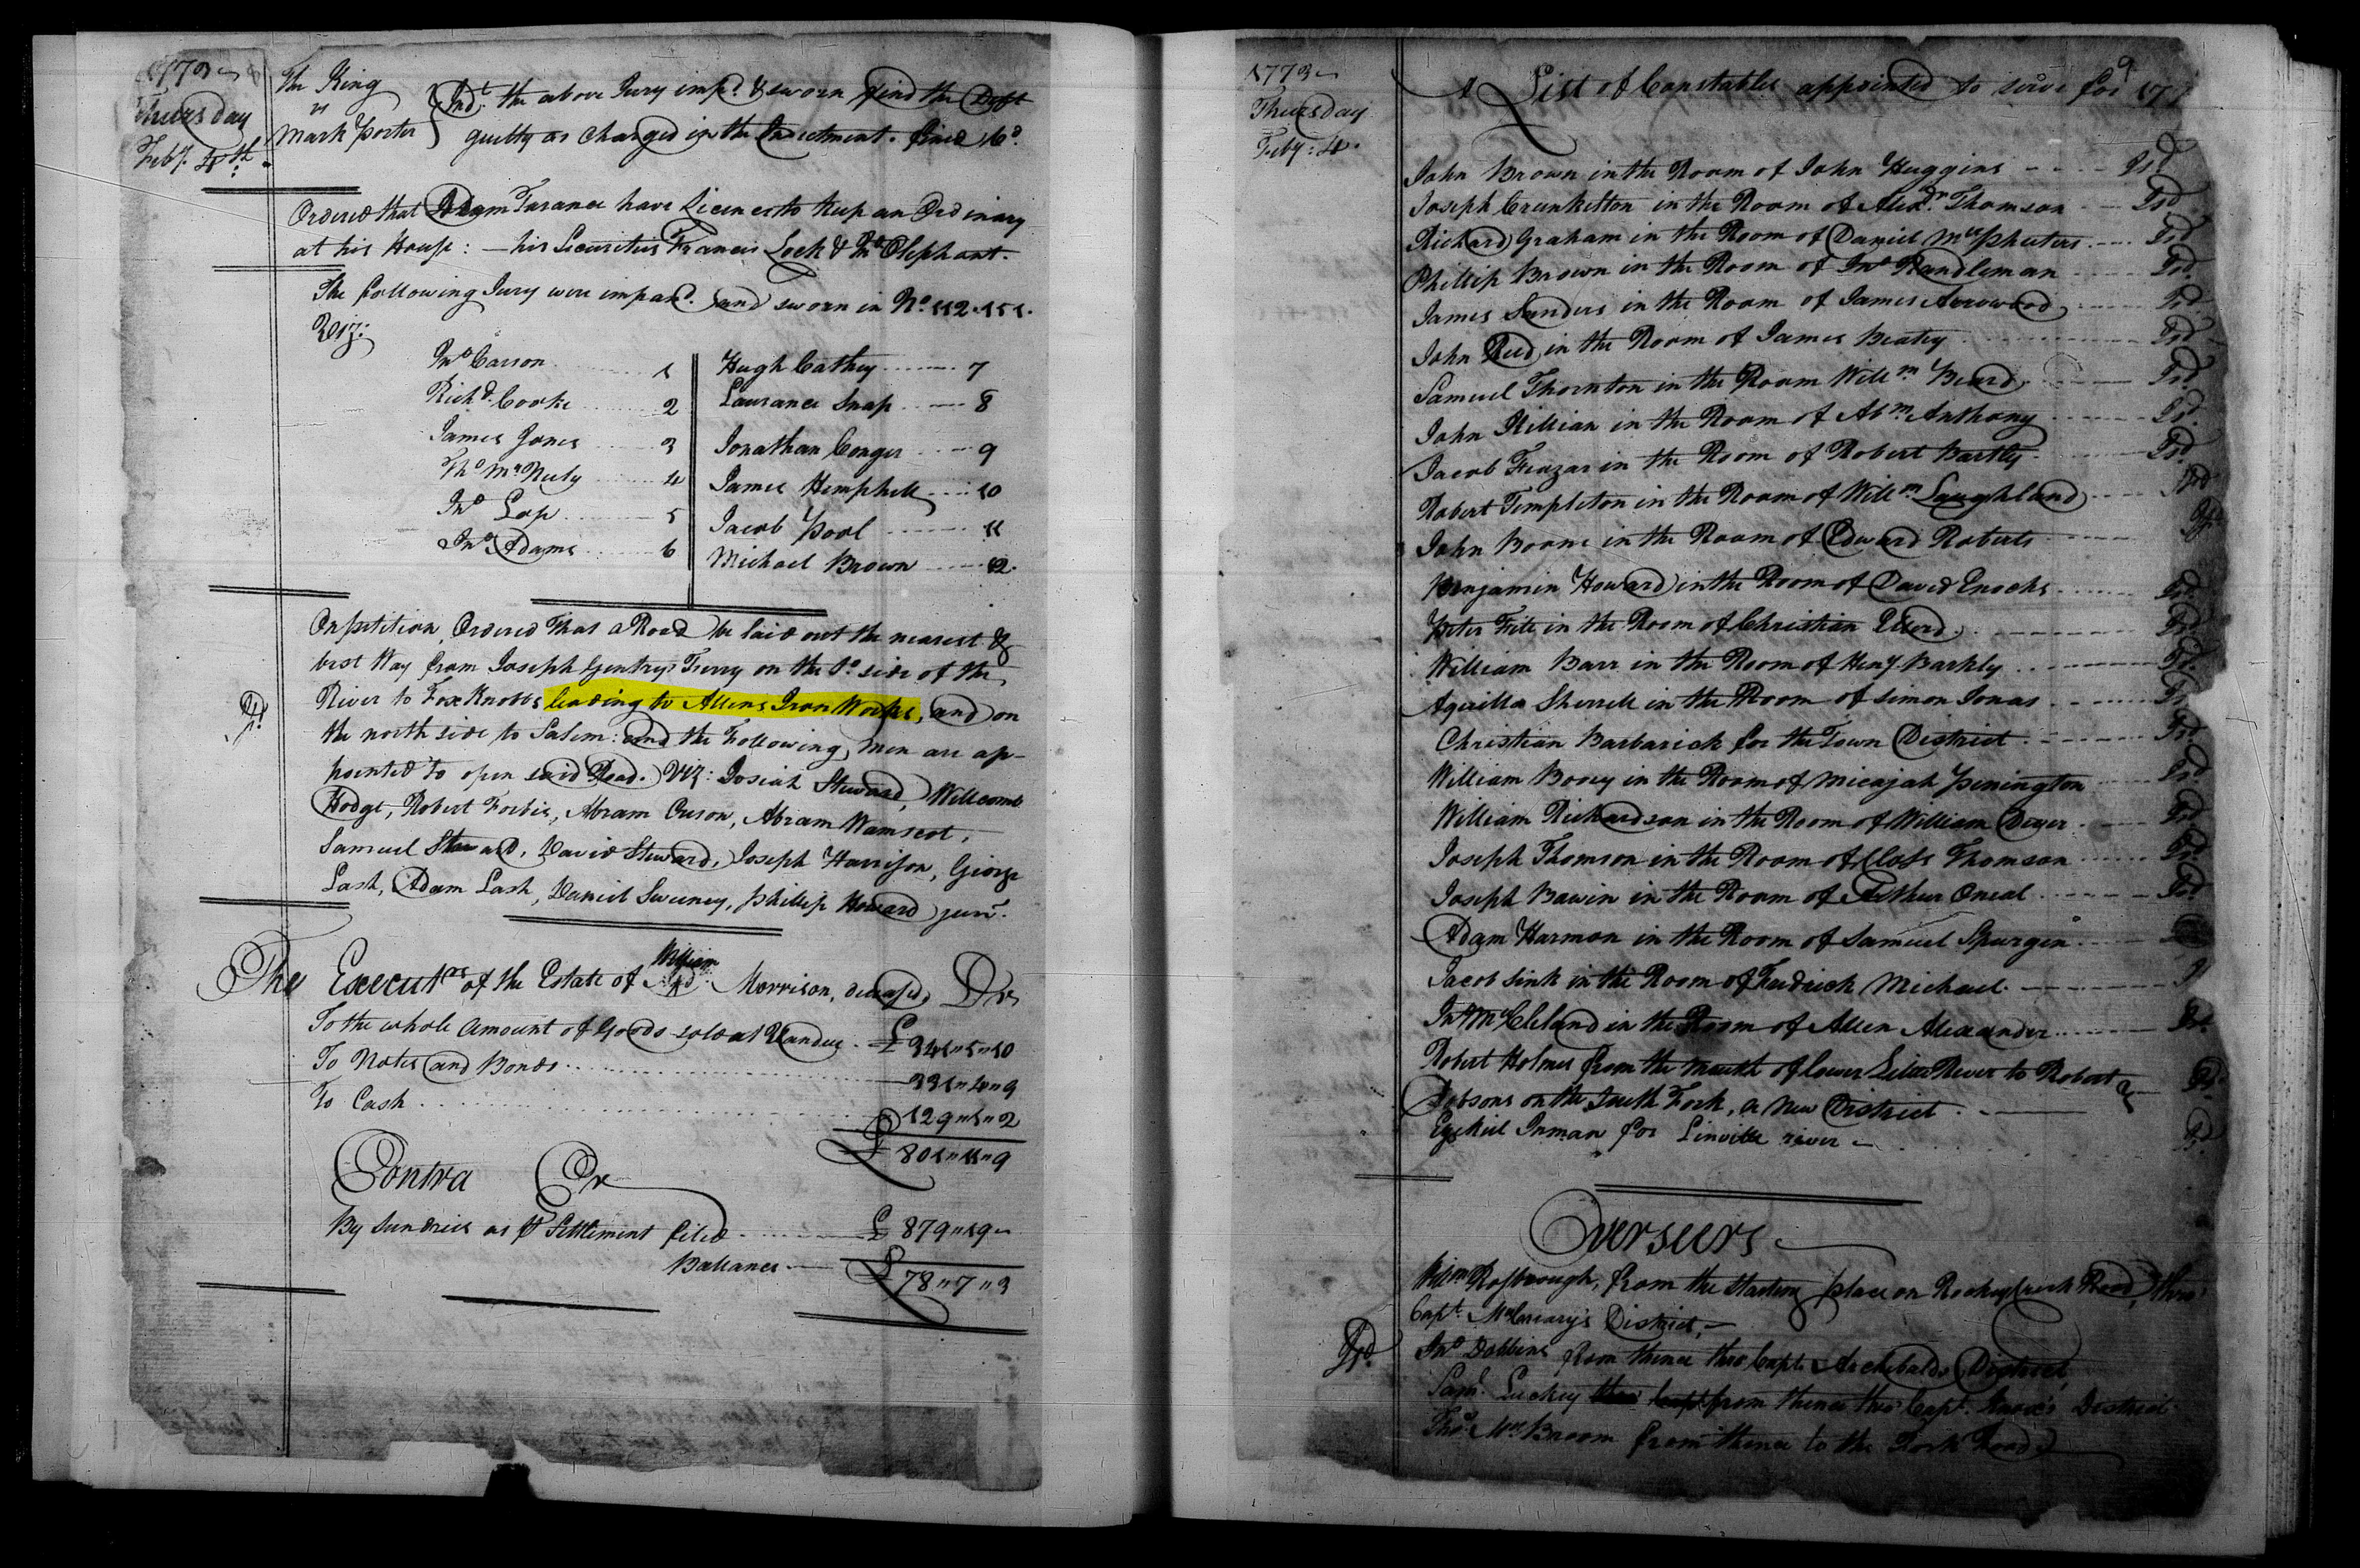 1773
Thursday
Feby. 4th.
The King
vs
Mark Porter
Indt. the above Jury impd. & sworn find the Deft
guilty as Charged in the Indictment. fined 6d.
Ordered that Adam Tarance have Licence to keep an Ordinary
at his House: — his Securities Francis Lock & Oliphant.
The following Jury were impand. and sworn in No. 112.151.
Viz:
Jno Carson 1
Richd. Cooke 2
James Jones 3
Tho McNeely 4
Jno Lop 5
Jno Adams 6
Hugh Cathey 7
Laurance Snap 8
Jonathan Conger 9
James Hemphill 10
Jacob Pool 11
Michael Brown 12.
On petition Ordered that a Road be laid out the nearest &
best Way from Joseph Gentrys Ferry on the So. side of the
River to Fox Knobbs leading to Allens Iron Works, and on
the north side to Salem: and the Following men are ap-
pointed to open said Road. Viz: Josiah Steward, Willcomb
Hodge, Robert Forbis, Abram Cuson, Abram Wamscot,
Samuel Steward, David Steward, Joseph Harrison, George
Lash, Adam Lash, Daniel Sweeney, Phillip Howard junr.
The Executrs of the Estate of William Morrison, deceasd, Dr
To the whole Amount of Goods sold at Vandue £ 341"5"10
To Notes and Bonds 331"4"9
To Cash 129"1"2
£ 801"11"9
Contra Cr
By Sundries as pr Settlement filed £ 879"19"
Ballance £ 78"7"3
1773
Thursday
Feby: 4.
9
A List of Constables appointed to serve for 177
John Brown in the Room of John Huggins Isd
Joseph Crunkelton in the Room of Alexdr. Thomson Isd
Richard Graham in the Room of Daniel McPheeters Isd
Phillip Brown in the Room of Jno Randleman Isd
James Sanders in the Room of James Arrowood Isd
John Reed in the Room of James Beatey Isd
Samuel Thornton in the Room Willm Beard Isd
John Killian in the Room of Abm. Anthony Isd
Jacob Frazar in the Room of Robert Bartley Isd
Robert Templeton in the Room of Willm Laughland Isd
John Boone in the Room of Edward Roberts
Benjamin Howard in the Room of David Enochs Isd
Peter Fite in the Room of Christian Isd
William Barr in the Room of Heny Barkly Isd
Aquilla Sherrill in the Room of Simon Jonas Is
Christian Barbarick for the Town District Isd
William Booey in the Room of Micajah Penington Isd
William Richardson in the Room of William Dyer Isd
Joseph Thomson in the Room of Closs Thomson Isd
Joseph Bawin in the Room of Arthur Oneal Isd
Adam Harmon in the Room of Samuel Spurgin
Jacob Sink in the Room of Fredrick Michael I
Jno McCleland in the Room of Allen Alexander Isd
Robert Holmes from the Mouth of lower Little River to Robert
Dobsons on the South Fork, a New District Isd
Ezekiel Inman for Linville river Isd
Overseers
Willm Rosbrough, from the starting place on Rocky Creek Road, thro'
Capt. McCreary's District,
Isd.
Jno Dobbins from thence thro Capt. Archibalds District,
Saml. Luckey from thence thro' Capt. Knox's District
Thos. McBroom from thence to the Fork Road